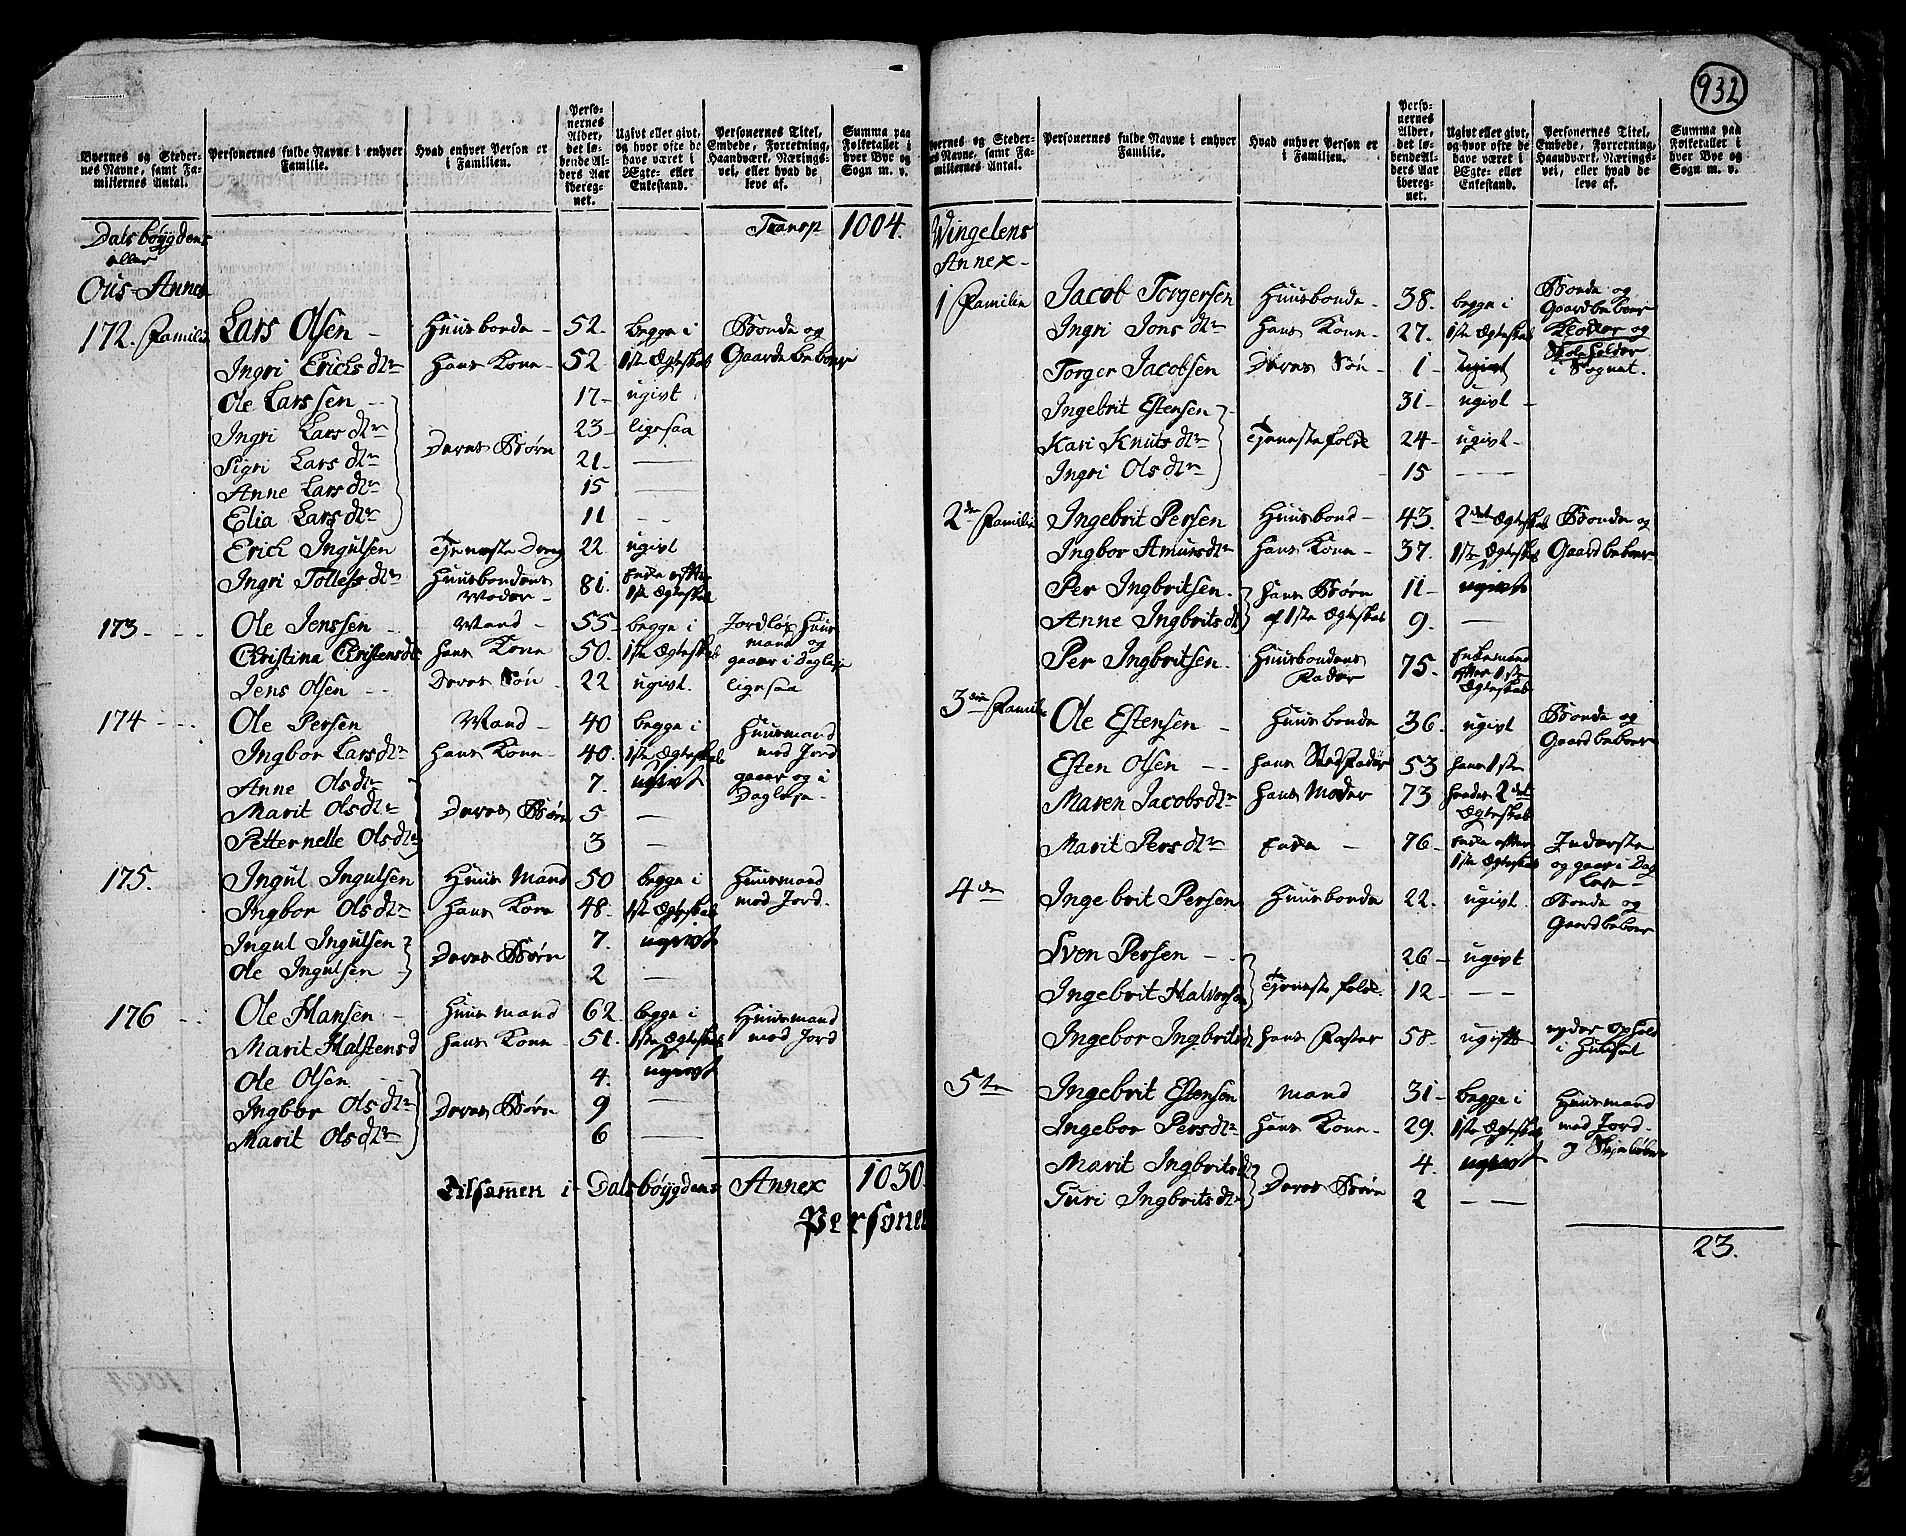 932
Byernes og Stedernes Navne, samt Familiernes Antal.
Personernes fulde Navne i enhver Familie.
Hvad enhver Person er i Familien.
Personernes Alder, det løbende Alders Aar iberegnet.
Ugivt eller givt, og hvor ofte de have været i Ægte- eller Enkestand.
Personernes Titel, Embede, Forretning, Haandværk, Næringsvei, eller hvad de leve af.
Summa paa Folketallet i hver Bye og Sogn m. v.
Dalsbøygdens Transp 1004.
eller
Ous-Annex
172. Familie Lars Olsen - Huusbonde - 52. begge i Bonde og
Ingri Erichs dtr Hans Kone - 52 1ste Ægteskab Gaardebeboer
Ole Larssen - 17 - ugivt
Ingri Lars dtr 23 - ligesaa
Sigri Lars dtr Deres Børn 21 - —
Anne Lars dtr 15 —
Elia Lars dtr 11 - -
Erich Ingulsen Tjeneste Dreng 22 ugivt
Ingri Tollefs dtr Huusbondens Moder - 81. Enke efter 1ste Ægteskab
173 - - - Ole Jenssen Mand - 55 begge i Jordløs Huusmand og
Christina Christensdtr Hans Kone 50. 1ste Ægteskab gaaer i Dagleje
Jens Olsen - - Deres Søn 22 ugivt. ligesaa
174 - - - Ole Persen Mand - 40 begge i Huusmand
Ingbor Larsdtr Hans Kone - 40. 1ste Ægteskab med Jord
Anne Olsdtr 7. ugivt gaaer og i
Marit Olsdtr Deres Børn 5 — Dagleje -
Petternelle Olsdtr 3 —
175. Ingul Ingulsen Huus Mand 50 begge i Huusmand
Ingbor Olsdtr Hans Kone 48. 1ste Ægteskab med Jord.
Ingul Ingulsen Deres Børn 7. ugivt
Ole Ingulsen 2 —
176 - - Ole Hansen - Huusmand 62. begge i Huusmand
Marit Halstensd Hans Kone - 51. 1ste Ægteskab med Jord
Ole Olsen 4. ugivt
Ingbor Olsdtr Deres Børn 9 —
Marit Olsdtr 6 —
Tilsamen i Dalsbøygdens Annex 1030.
Personer
Byernes og Stedernes Navne, samt Familiernes Antal.
Personernes fulde Navne i enhver Familie.
Hvad enhver Person er i Familien.
Personernes Alder, det løbende Alders Aar iberegnet.
Ugivt eller givt, og hvor ofte de have været i Ægte- eller Enkestand.
Personernes Titel, Embede, Forretning, Haandværk, Næringsvei, eller hvad de leve af.
Summa paa Folketallet i hver Bye og Sogn m. v.
Wingelens
Annex -
1 Familie Jacob Torgersen Huusbonde - 38. begge i Bonde og Gaardbeboer
Ingri Jons dtr Hans Kone - 27. 1ste Ægteskab Klokker og
Torger Jacobsen Deres Søn - 1 - ugivt Skoleholder i Sognet.
Ingebrit Estensen 31 - ugivt -
Kari Knuts dtr Tjenestefolk 24 - ugivt -
Ingri Ols dtr 15 - - -
2den Familie Ingebrit Persen Huusbond - 43. 2det Ægteskab Bonde og
Ingbor Amunsdtr Hans Kone - 37. 1ste Ægteskab Gaardbeboer
Per Ingbritsen. Hans Børn 11 - ugivt
Anne Ingbritsdtr af 1ste Ægteskab 9. —
Per Ingbritsen. Huusbondens Fader 75. Enkemand efter 1ste Ægteskab
3die Familie Ole Estensen - Huusbonde 36. ugivt Bonde og Gaardbeboer
Esten Olsen - - Hans Stedfader 53 Hans 1ste
Maren Jacobsdtr Hans Moder 73 Hendes 2det Ægteskab
Marit Persdtr Enke - 76 - Enke efter 1ste Ægteskab Inderste og gaaer i Dag Leje -
4de Ingebrit Persen Huusbonde 22. ugivt Bonde og Gaardbeboer
Sven Persen - - 26 - ugivt
Ingebrit Halvorsen Tjenestefolk. 12 - - -
Ingebor Ingbritsd Hans Faster 58. ugivt nyder Ophold i Huuset
5te Ingebrit Estensen Mand 31 - begge i Huusmand
Ingebor Persdtr Hans Kone - 29. 1ste Ægteskab med Jord.
Marit Ingbritsdtr Deres Børn 4. ugivt
Turi Ingbritsdtr 2 - -
23.